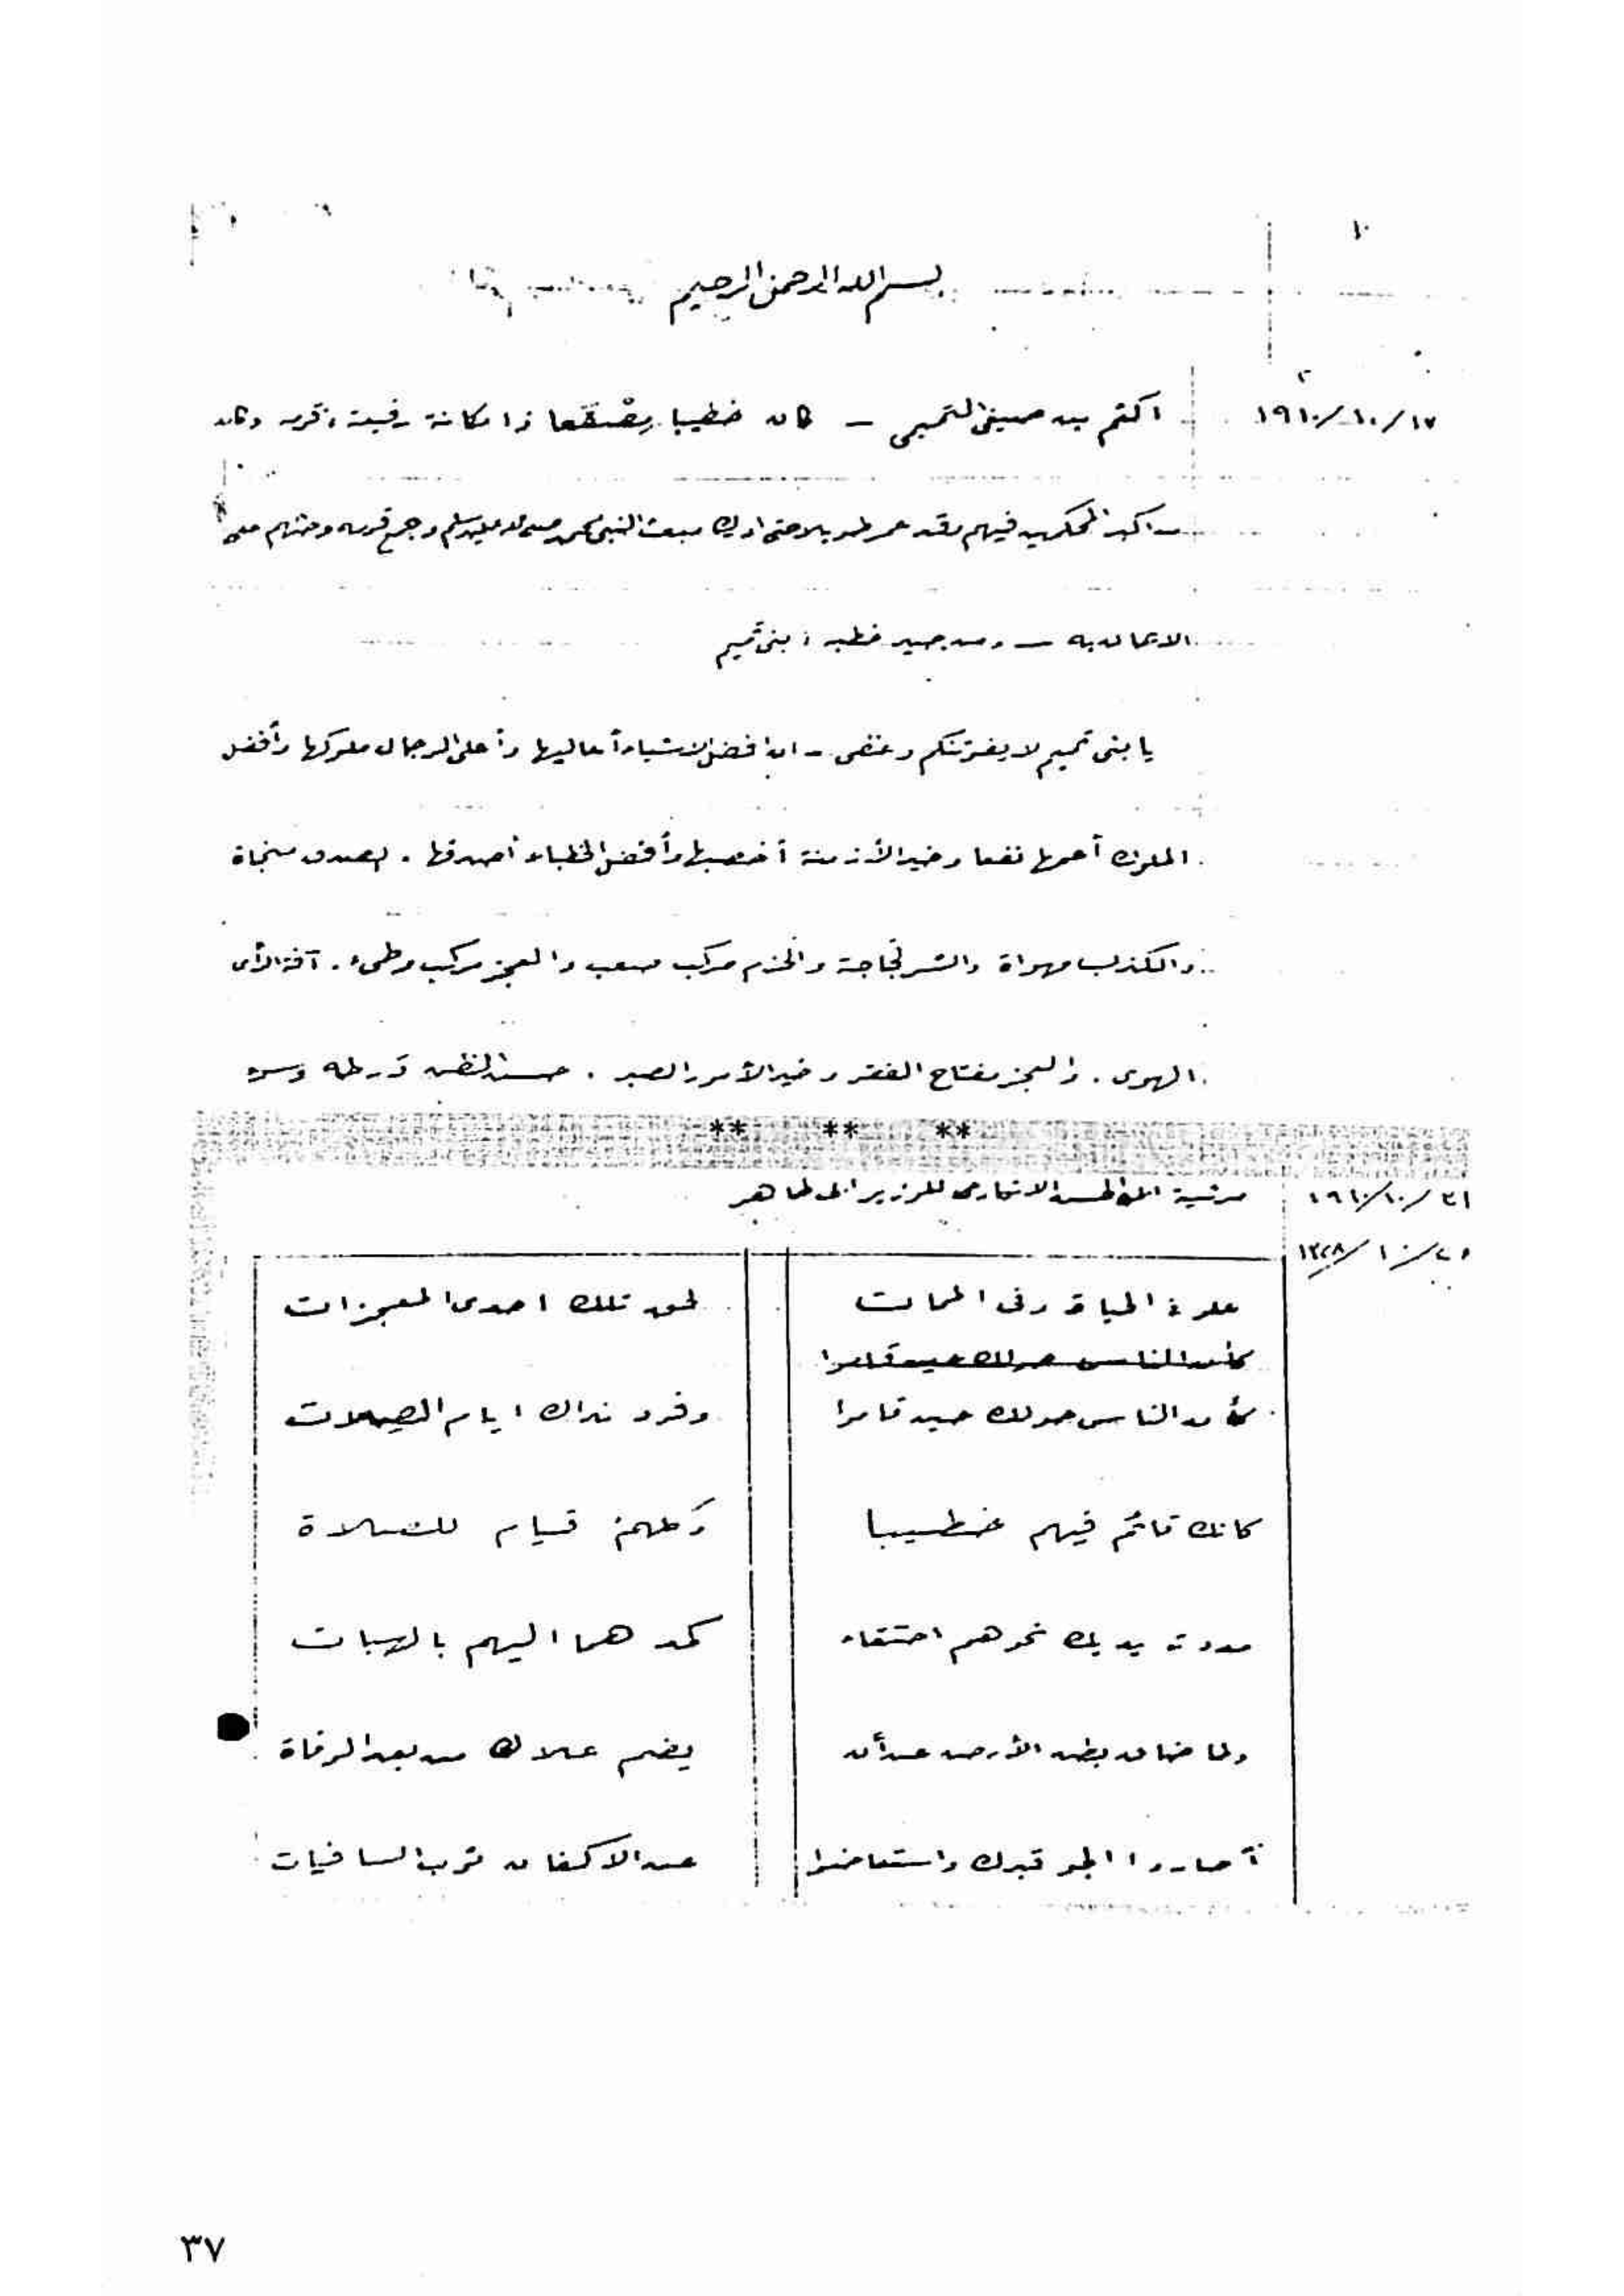 ١٠
بسم الله الرحمن الرحيم
١٧/١٠/١٩٦٠
اكثم بن صيفى التميمى – كان خطيبا مِصْقَعا ذا مكانة رفيعة فى قومه وكان
من اكبر المحكمين فيهم وقد عمر طويلا حتى ادرك مبعث النبى محمد صلى الله عليه وسلم وجمع قومه وحثهم على
الايمان به – ومن جيد خطبه فى بنى تميم
يا بنى تميم لا يفوتنكم وعظى – ان افضل الاشياء أعاليها وأعلى الرجال ملوكها وأفضل
الملوك أعمها نفعا وخير الأزمنة أخصبها وأفضل الخطباء أصدقها . الصدق منجاة
والكذب مهواة والشر لجاجة والحزم مركب صعب والعجز مركب وطىء . آفة الرأى
الهوى . والعجز مفتاح الفقر وخير الأمور الصبر . حسن الظن ورطه وسوء
** ** **
٣١/١٠/١٩٦٠
مرثية ابى الحسن الانبارى للوزير ابى طاهر
٢٥/١٠/١٣٢٨
علو فى الحياة وفى الممات لحق تلك احدى المعجزات
كأن الناس حولك حين قاموا
كأن الناس حولك حين قاموا وفود نداك ايام الصلات
كانك قائم فيهم خطيبا وكلهم قيام للصلاة
مددت يديك نحوهم احتفاء كمدهما اليهم بالهبات
ولما ضاق بطن الأرض عن أن يضم علاك من بعد الوفاة
أصاروا الجو قبرك واستعاضوا عن الاكفان ثوب السافيات
٣٧